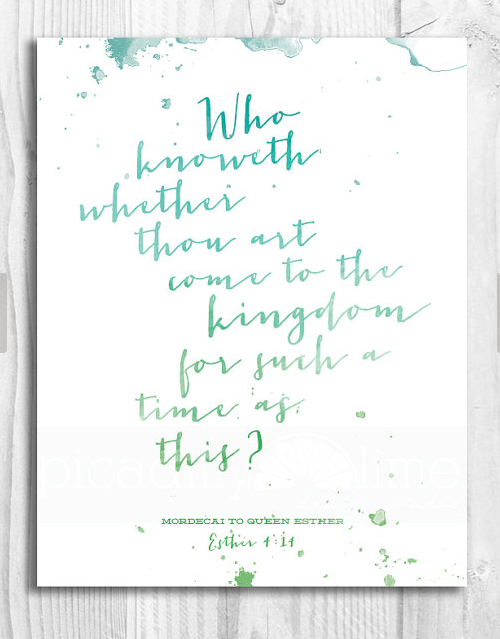 Who
knoweth
whether
thou art
come to the
kingdom
for such a
time as
this?
picadilly lime
MORDECAI TO QUEEN ESTHER
Esther 4:14